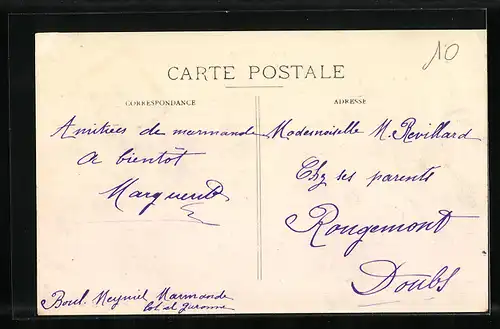 10
CARTE POSTALE
CORRESPONDANCE
ADRESSE
Amitiées de marmande
A bientôt
Marguerite
Boul. Meyniel Marmande
Lot et Garonne
Mademoiselle M. Revillard
Chez ses parents
Rougemont
Doubs